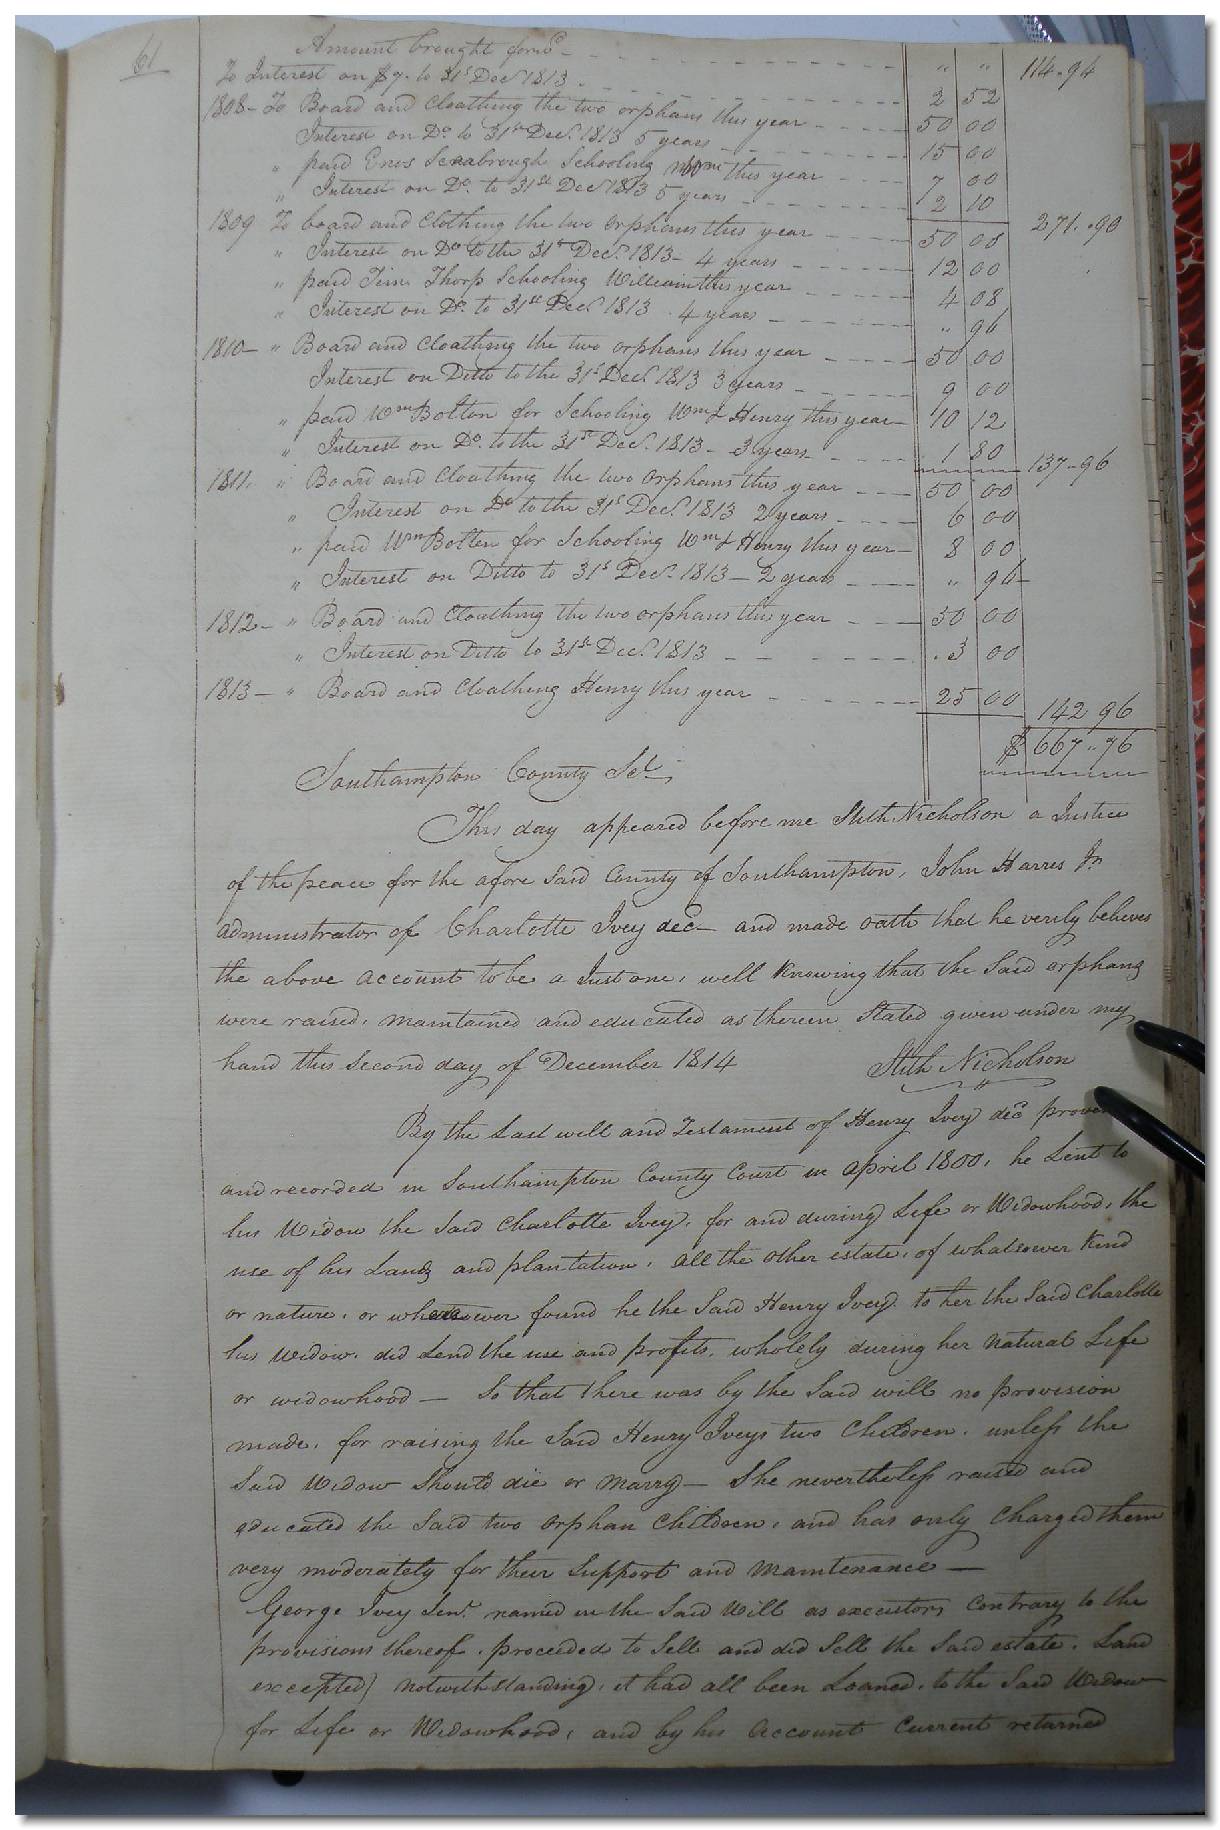 61
Amount brought forwd " " 114.94
To Interest on $7. to 31st Decr 1813 2 52
1808 - To Board and Cloathing the two orphans this year 50 00
Interest on Do to 31st Decr. 1813 5 years 15 00
" paid Enos Scarbrough Schooling Wm this year 7 00
" Interest on Do. to 31st Decr 1813 5 years 2 10
1809 To board and Clothing the two orphans this year 50 00 271..90
" Interest on Do to the 31st Decr. 1813 - 4 years 12 00
" paid Tim. Thorp Schooling William this year 4 08
" Interest on Do. to 31st Decr. 1813 . 4 years " 96
1810 - " Board and Cloathing the two orphans this year 50 00
Interest on Ditto to the 31st Decr. 1813 3 years 9 00
" paid Wm Bolton for Schooling Wm & Henry this year 10 12
" Interest on Do. to the 31st Decr. 1813 - 3 years 1 80 137-96
1811. " Board and Cloathing the two orphans this year 50 00
" Interest on Do to the 31st Decr. 1813 2 years 6 00
" paid Wm Bolten for Schooling Wm & Henry this year 8 00
" Interest on Ditto to 31st Decr. 1813 - 2 years " 96
1812 - " Board and Cloathing the two orphans this year 50 00
" Interest on Ditto to 31st Decr. 1813 . 3 00
1813 - " Board and Cloathing Henry this year 25 00 142 96
$ 667..76
Southampton County Sct,
This day appeared before me Stith Nicholson a Justice
of the peace for the afore Said County of Southampton, John Harres Jr.
administrator of Charlotte Ivey decd and made oath that he verily believes
the above account to be a Just one, well Knowing that the Said orphans
were raised, maintained and educated as therein Stated given under my
hand this Second day of December 1814 Stith Nicholson
By the Last will and Testament of Henry Ivey decd
and recorded in Southampton County Court in April 1800, he Lent to
his Widow the Said Charlotte Ivey, for and during Life or Widowhood, the
use of his Land and plantation, all the other estate, of whatsoever Kind
or nature, or wheresoever found he the Said Henry Ivey, to her the Said Charlotte
his Widow, did Lend the use and profits, wholely during her natural Life
or widowhood — So that there was by the Said will no provision
made, for raising the Said Henry Iveys two Children, unless the
Said Widow Should die or Marry — She nevertheless raised and
educated the Said two orphan Children, and has only Charged them
very moderately for their Support and Maintenance —
George Ivey Senr. named in the Said Will as executor, Contrary to the
provisions thereof, proceeded to Sell and did Sell the Said estate, Land
excepted) notwithstanding, it had all been Loaned, to the Said Widow
for Life or Widowhood, and by his Account Current returned